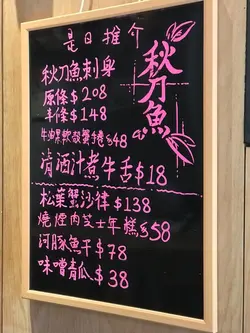 是日推介
秋刀魚
秋刀魚刺身
原條$208
半條$148
牛油果軟殼蟹手卷$48
清酒汁煮牛舌$18
松葉蟹沙律$138
燒煙肉芝士年糕$58
河豚魚干$78
味噌青瓜$38